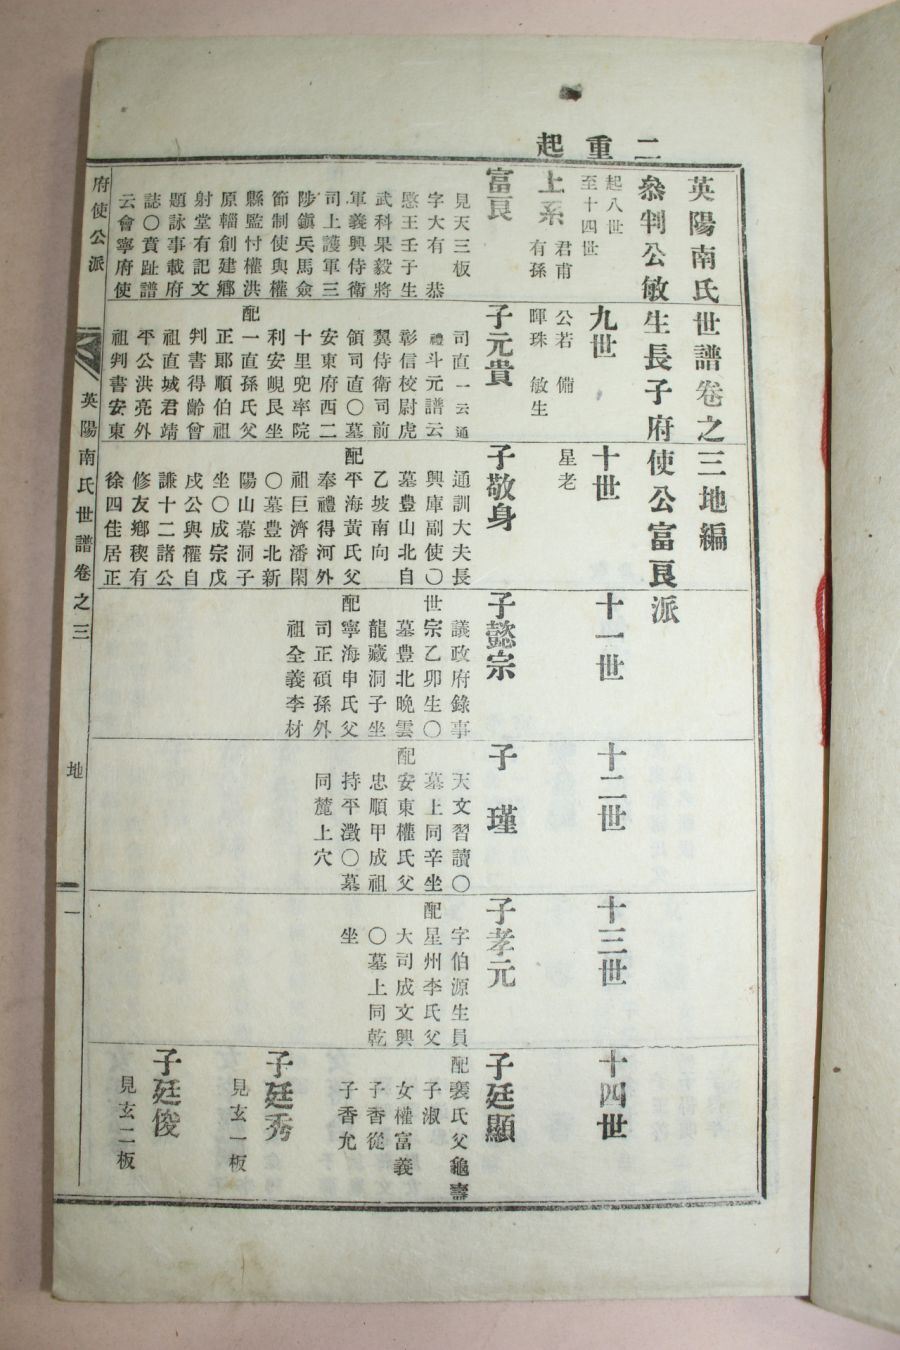 二重起
英陽南氏世譜卷之三地編
叅判公敏生長子府使公富良派
起八世
至十四世
上系
君甫
有孫
公若 備
暉珠 敏生
星老
九世
十世
十一世
十二世
十三世
十四世
富良
見天三板
字大有 恭
愍王壬子生
武科果毅將
軍義興侍衛
司上護軍三
陟鎭兵馬僉
節制使與權
縣監忖權洪
原輜創建鄉
射堂有記文
題詠事載府
誌〇賁趾譜
云會寧府使
子元貴
司直一云通
禮斗元譜云
彰信校尉虎
翼侍衛司前
領司直〇墓
安東府西二
十里兜率院
利安峴艮坐
配一直孫氏父
正郎順伯祖
判書得齡曾
祖直城君靖
平公洪亮外
祖判書安東
子敬身
通訓大夫長
興庫副使〇
墓豊山北自
乙坡南向
配平海黃氏父
奉禮得河外
祖巨濟潘閑
〇墓豊北新
陽山幕洞子
坐〇成宗戊
戌公與權自
謙十二諸公
修友鄉稧有
徐四佳居正
子懿宗
議政府錄事
世宗乙卯生〇
墓豊北晩雲
龍藏洞子坐
配寧海申氏父
司正碩孫外
祖全義李材
子 瑾
天文習讀〇
墓上同辛坐
配安東權氏父
忠順甲成祖
持平澂〇墓
同麓上穴
子孝元
字伯源生員
配星州李氏父
大司成文興
〇墓上同乾
坐
子廷顯
配裵氏父龜壽
子淑
女權富義
子香從
子香允
子廷秀
見玄一板
子廷俊
見玄二板
府使公派
英陽南氏世譜卷之三
地
一